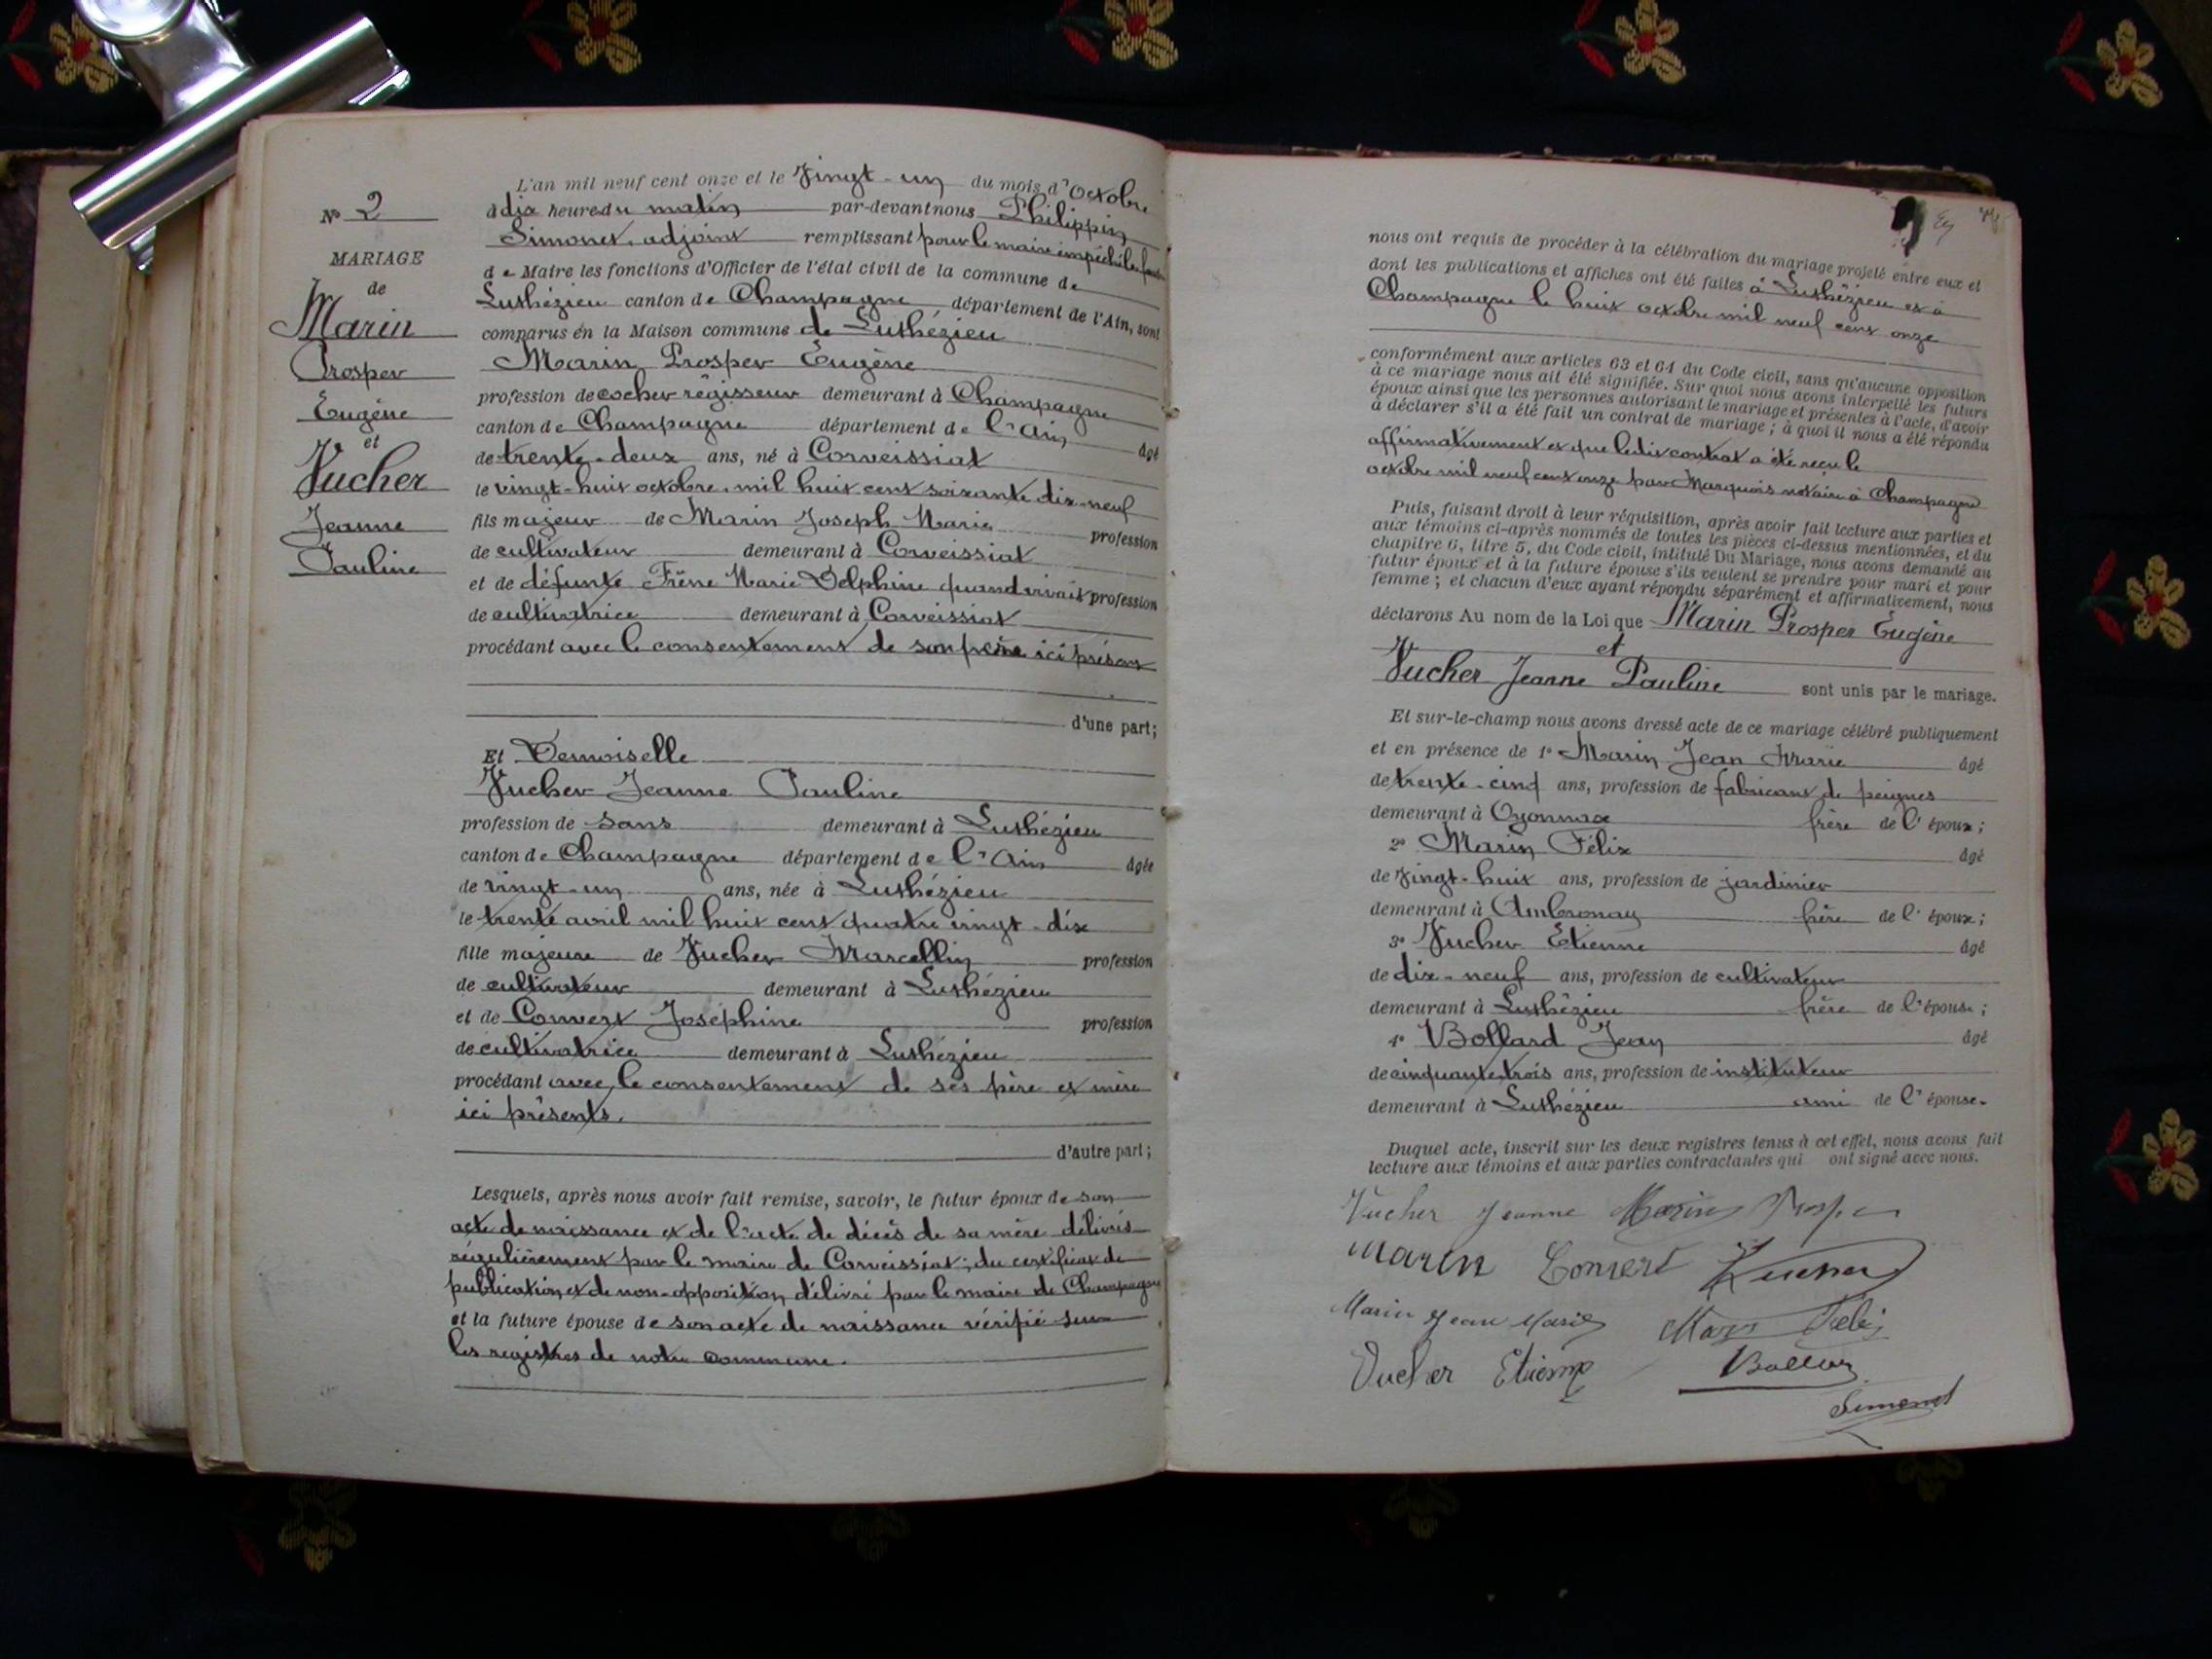 L'an mil neuf cent onze et le Vingt-un du mois d'Octobre
N° 2
à dix heures du matin par-devant nous Philippin
Simonet, adjoint remplissant pour le maire empêché les fonctions
MARIAGE
de Maire les fonctions d'Officier de l'état civil de la commune de
de
Luthézieu canton de Champagne département de l'Ain, sont
Marin
comparus en la Maison commune de Luthézieu
Prosper
Marin Prosper Eugène
profession de cocher régisseur demeurant à Champagne
Eugène
canton de Champagne département de l'Ain âgé
et
de trente-deux ans, né à Corveissiat
Vucher
le vingt-huit octobre mil huit cent soixante dix-neuf
Jeanne
fils majeur de Marin Joseph Marie profession
Pauline
de cultivateur demeurant à Corveissiat
et de défunte Frêne Marie Delphine quand vivait profession
de cultivatrice demeurant à Corveissiat
procédant avec le consentement de son père ici présent
d'une part;
Et Demoiselle
Vucher Jeanne Pauline
profession de sans demeurant à Luthézieu
canton de Champagne département de l'Ain âgée
de vingt-un ans, née à Luthézieu
le trente avril mil huit cent quatre vingt-dix
fille majeure de Vucher Marcellin profession
de cultivateur demeurant à Luthézieu
et de Convert Joséphine profession
de cultivatrice demeurant à Luthézieu
procédant avec le consentement de ses père et mère
ici présents.
d'autre part;
Lesquels, après nous avoir fait remise, savoir, le futur époux de son
acte de naissance et de l'acte de décès de sa mère délivrés
régulièrement par le maire de Corveissiat; du certificat de
publication et de non-opposition délivré par le maire de Champagne
et la future épouse de son acte de naissance vérifié sur
les registres de notre commune.
nous ont requis de procéder à la célébration du mariage projeté entre eux et
dont les publications et affiches ont été faites à Luthézieu et à
Champagne le huit octobre mil neuf cent onze
conformément aux articles 63 et 64 du Code civil, sans qu'aucune opposition
à ce mariage nous ait été signifiée. Sur quoi nous avons interpellé les futurs
époux ainsi que les personnes autorisant le mariage et présentes à l'acte, d'avoir
à déclarer s'il a été fait un contrat de mariage; à quoi il nous a été répondu
affirmativement et que ledit contrat a été reçu le
octobre mil neuf cent onze par Marquois notaire à Champagne
Puis, faisant droit à leur réquisition, après avoir fait lecture aux parties et
aux témoins ci-après nommés de toutes les pièces ci-dessus mentionnées, et du
chapitre 6, titre 5, du Code civil, intitulé Du Mariage, nous avons demandé au
futur époux et à la future épouse s'ils veulent se prendre pour mari et pour
femme; et chacun d'eux ayant répondu séparément et affirmativement, nous
déclarons Au nom de la Loi que Marin Prosper Eugène
et
Vucher Jeanne Pauline sont unis par le mariage.
Et sur-le-champ nous avons dressé acte de ce mariage célébré publiquement
et en présence de 1° Marin Jean Marie âgé
de trente-cinq ans, profession de fabricant de peignes
demeurant à Oyonnax frère de l'époux;
2° Marin Félix âgé
de Vingt-huit ans, profession de jardinier
demeurant à Ambronay frère de l'époux;
3° Vucher Etienne âgé
de dix-neuf ans, profession de cultivateur
demeurant à Luthézieu frère de l'épouse;
4° Bollard Jean âgé
de cinquante trois ans, profession de instituteur
demeurant à Luthézieu ami de l'épouse.
Duquel acte, inscrit sur les deux registres tenus à cet effet, nous avons fait
lecture aux témoins et aux parties contractantes qui ont signé avec nous.
Vucher Jeanne Marin Prosper
Marin Convert Vucher
Marin Jean Marie Marin Félix
Vucher Etienne Bollard
Simonet